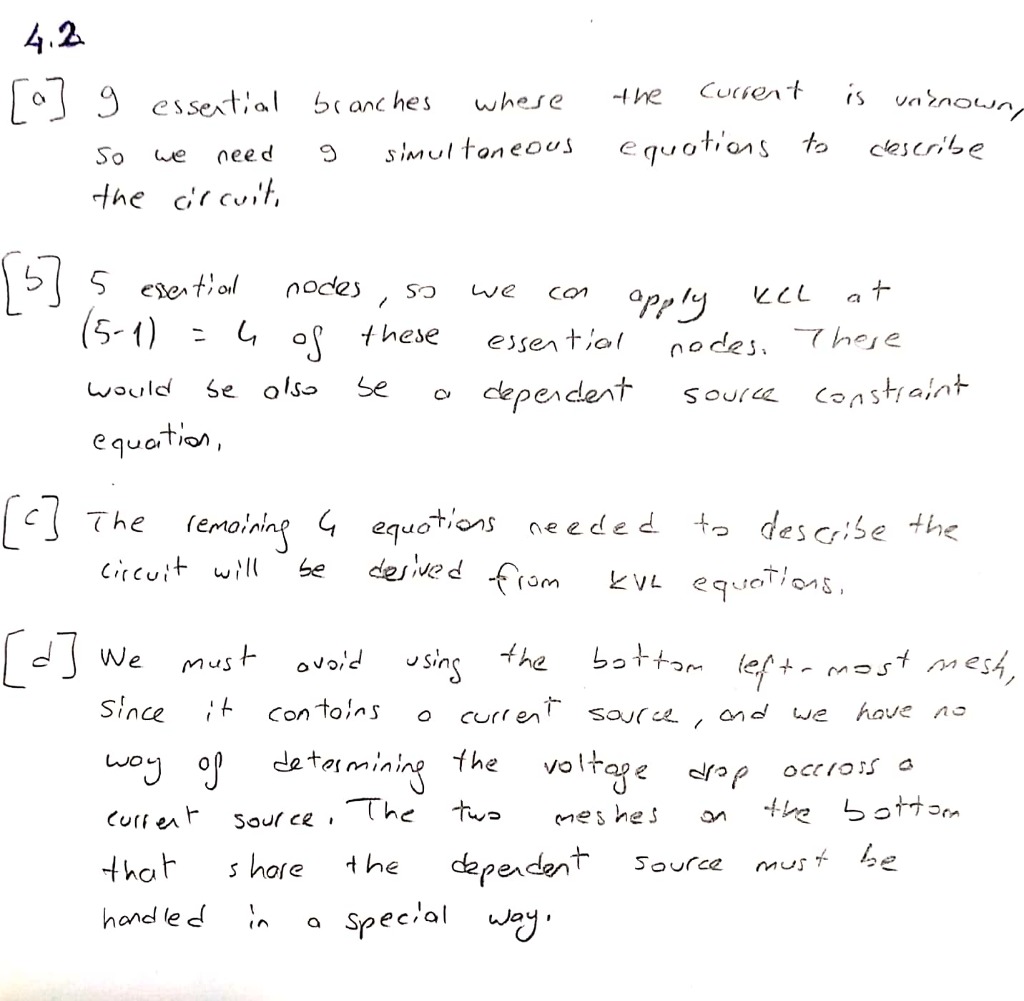 4.2
[a] 9 essential branches where the current is unknown,
so we need 9 simultaneous equations to describe
the circuit.
[b] 5 esential nodes, so we can apply KCL at
(5-1) = 4 of these essential nodes. These
would be also be a dependent source constraint
equation.
[c] The remaining 4 equations needed to describe the
circuit will be derived from KVL equations.
[d] We must avoid using the bottom left-most mesh,
since it contains a current source, and we have no
way of determining the voltage drop accross a
current source. The two meshes on the bottom
that share the dependent source must be
handled in a special way.